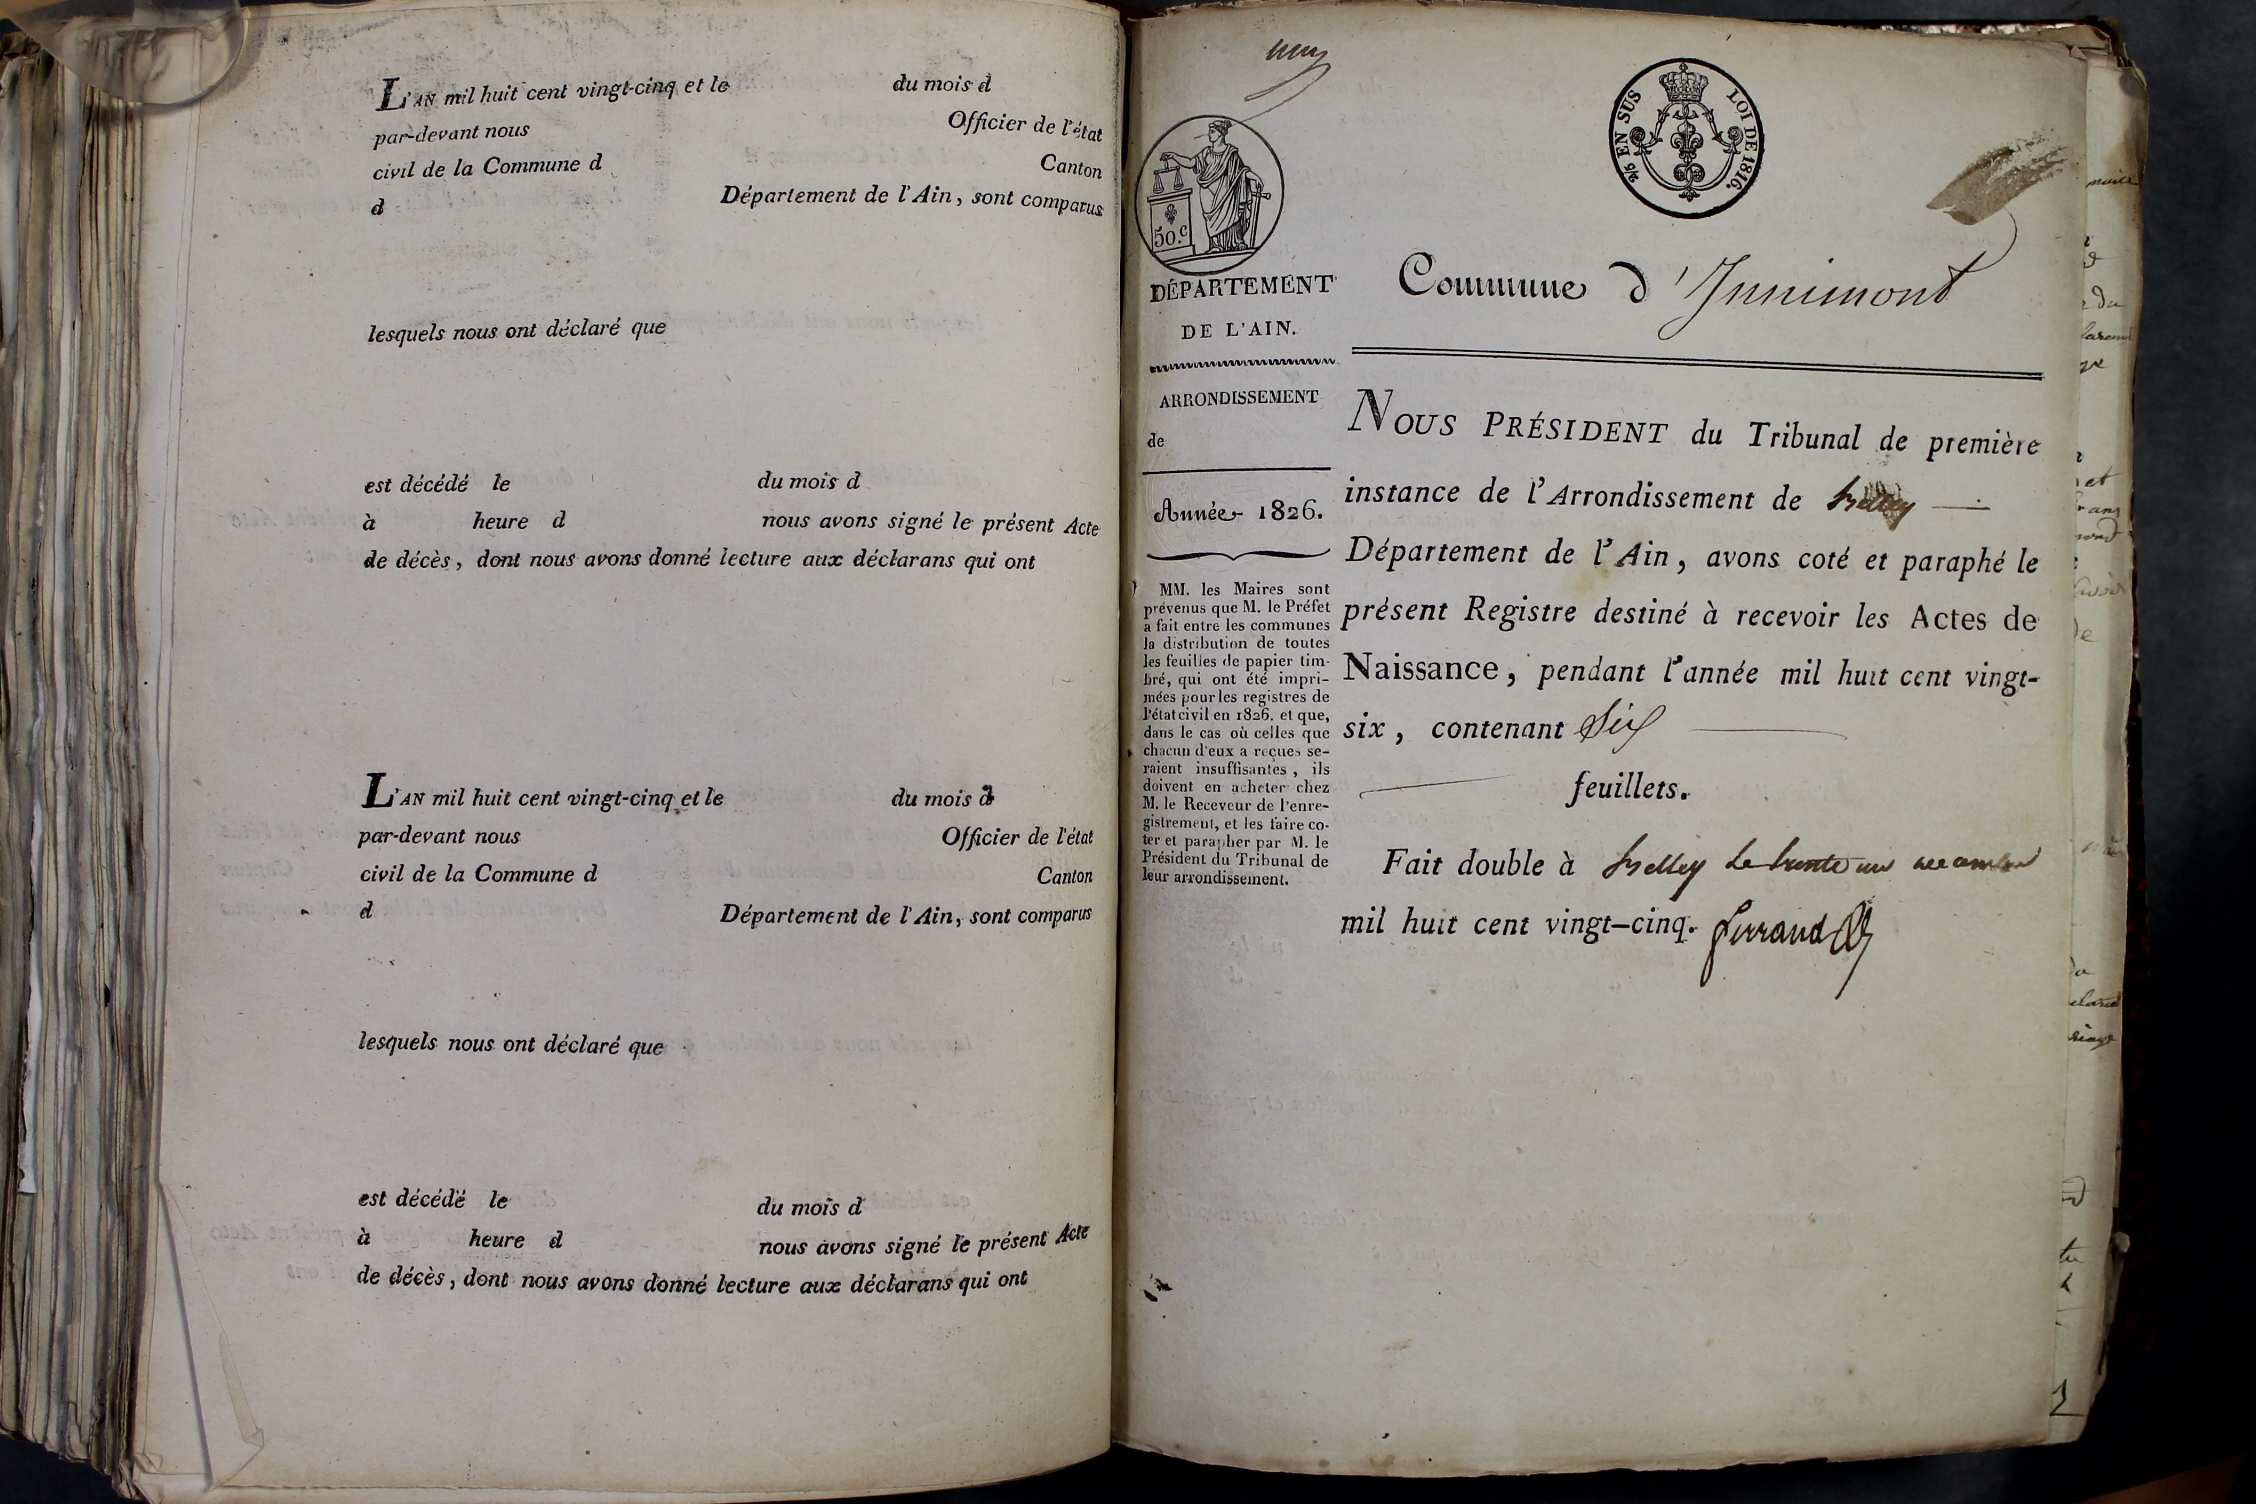 L'AN mil huit cent vingt-cinq et le du mois d
par-devant nous Officier de l'état
civil de la Commune d Canton
d Département de l'Ain, sont comparus
lesquels nous ont déclaré que
est décédé le du mois d
à heure d nous avons signé le présent Acte
de décès, dont nous avons donné lecture aux déclarans qui ont
L'AN mil huit cent vingt-cinq et le du mois d
par-devant nous Officier de l'état
civil de la Commune d Canton
d Département de l'Ain, sont comparus
lesquels nous ont déclaré que
est décédé le du mois d
à heure d nous avons signé le présent Acte
de décès, dont nous avons donné lecture aux déclarans qui ont
50.c
EN SUS LOI DE 1816.
DÉPARTEMENT
DE L'AIN.
ARRONDISSEMENT
de
Année 1826.
MM. les Maires sont
prévenus que M. le Préfet
a fait entre les communes
la distribution de toutes
les feuilles de papier tim-
bré, qui ont été impri-
mées pour les registres de
l'état civil en 1826, et que,
dans le cas où celles que
chacun d'eux a reçues se-
raient insuffisantes, ils
doivent en acheter chez
M. le Receveur de l'enre-
gistrement, et les faire co-
ter et parapher par M. le
Président du Tribunal de
leur arrondissement.
Commune d'Innimont
NOUS PRÉSIDENT du Tribunal de première
instance de l'Arrondissement de Belley
Département de l'Ain, avons coté et paraphé le
présent Registre destiné à recevoir les Actes de
Naissance, pendant l'année mil huit cent vingt-
six, contenant Six
feuillets.
Fait double à Belley le trente un decembre
mil huit cent vingt-cinq. Ferrand